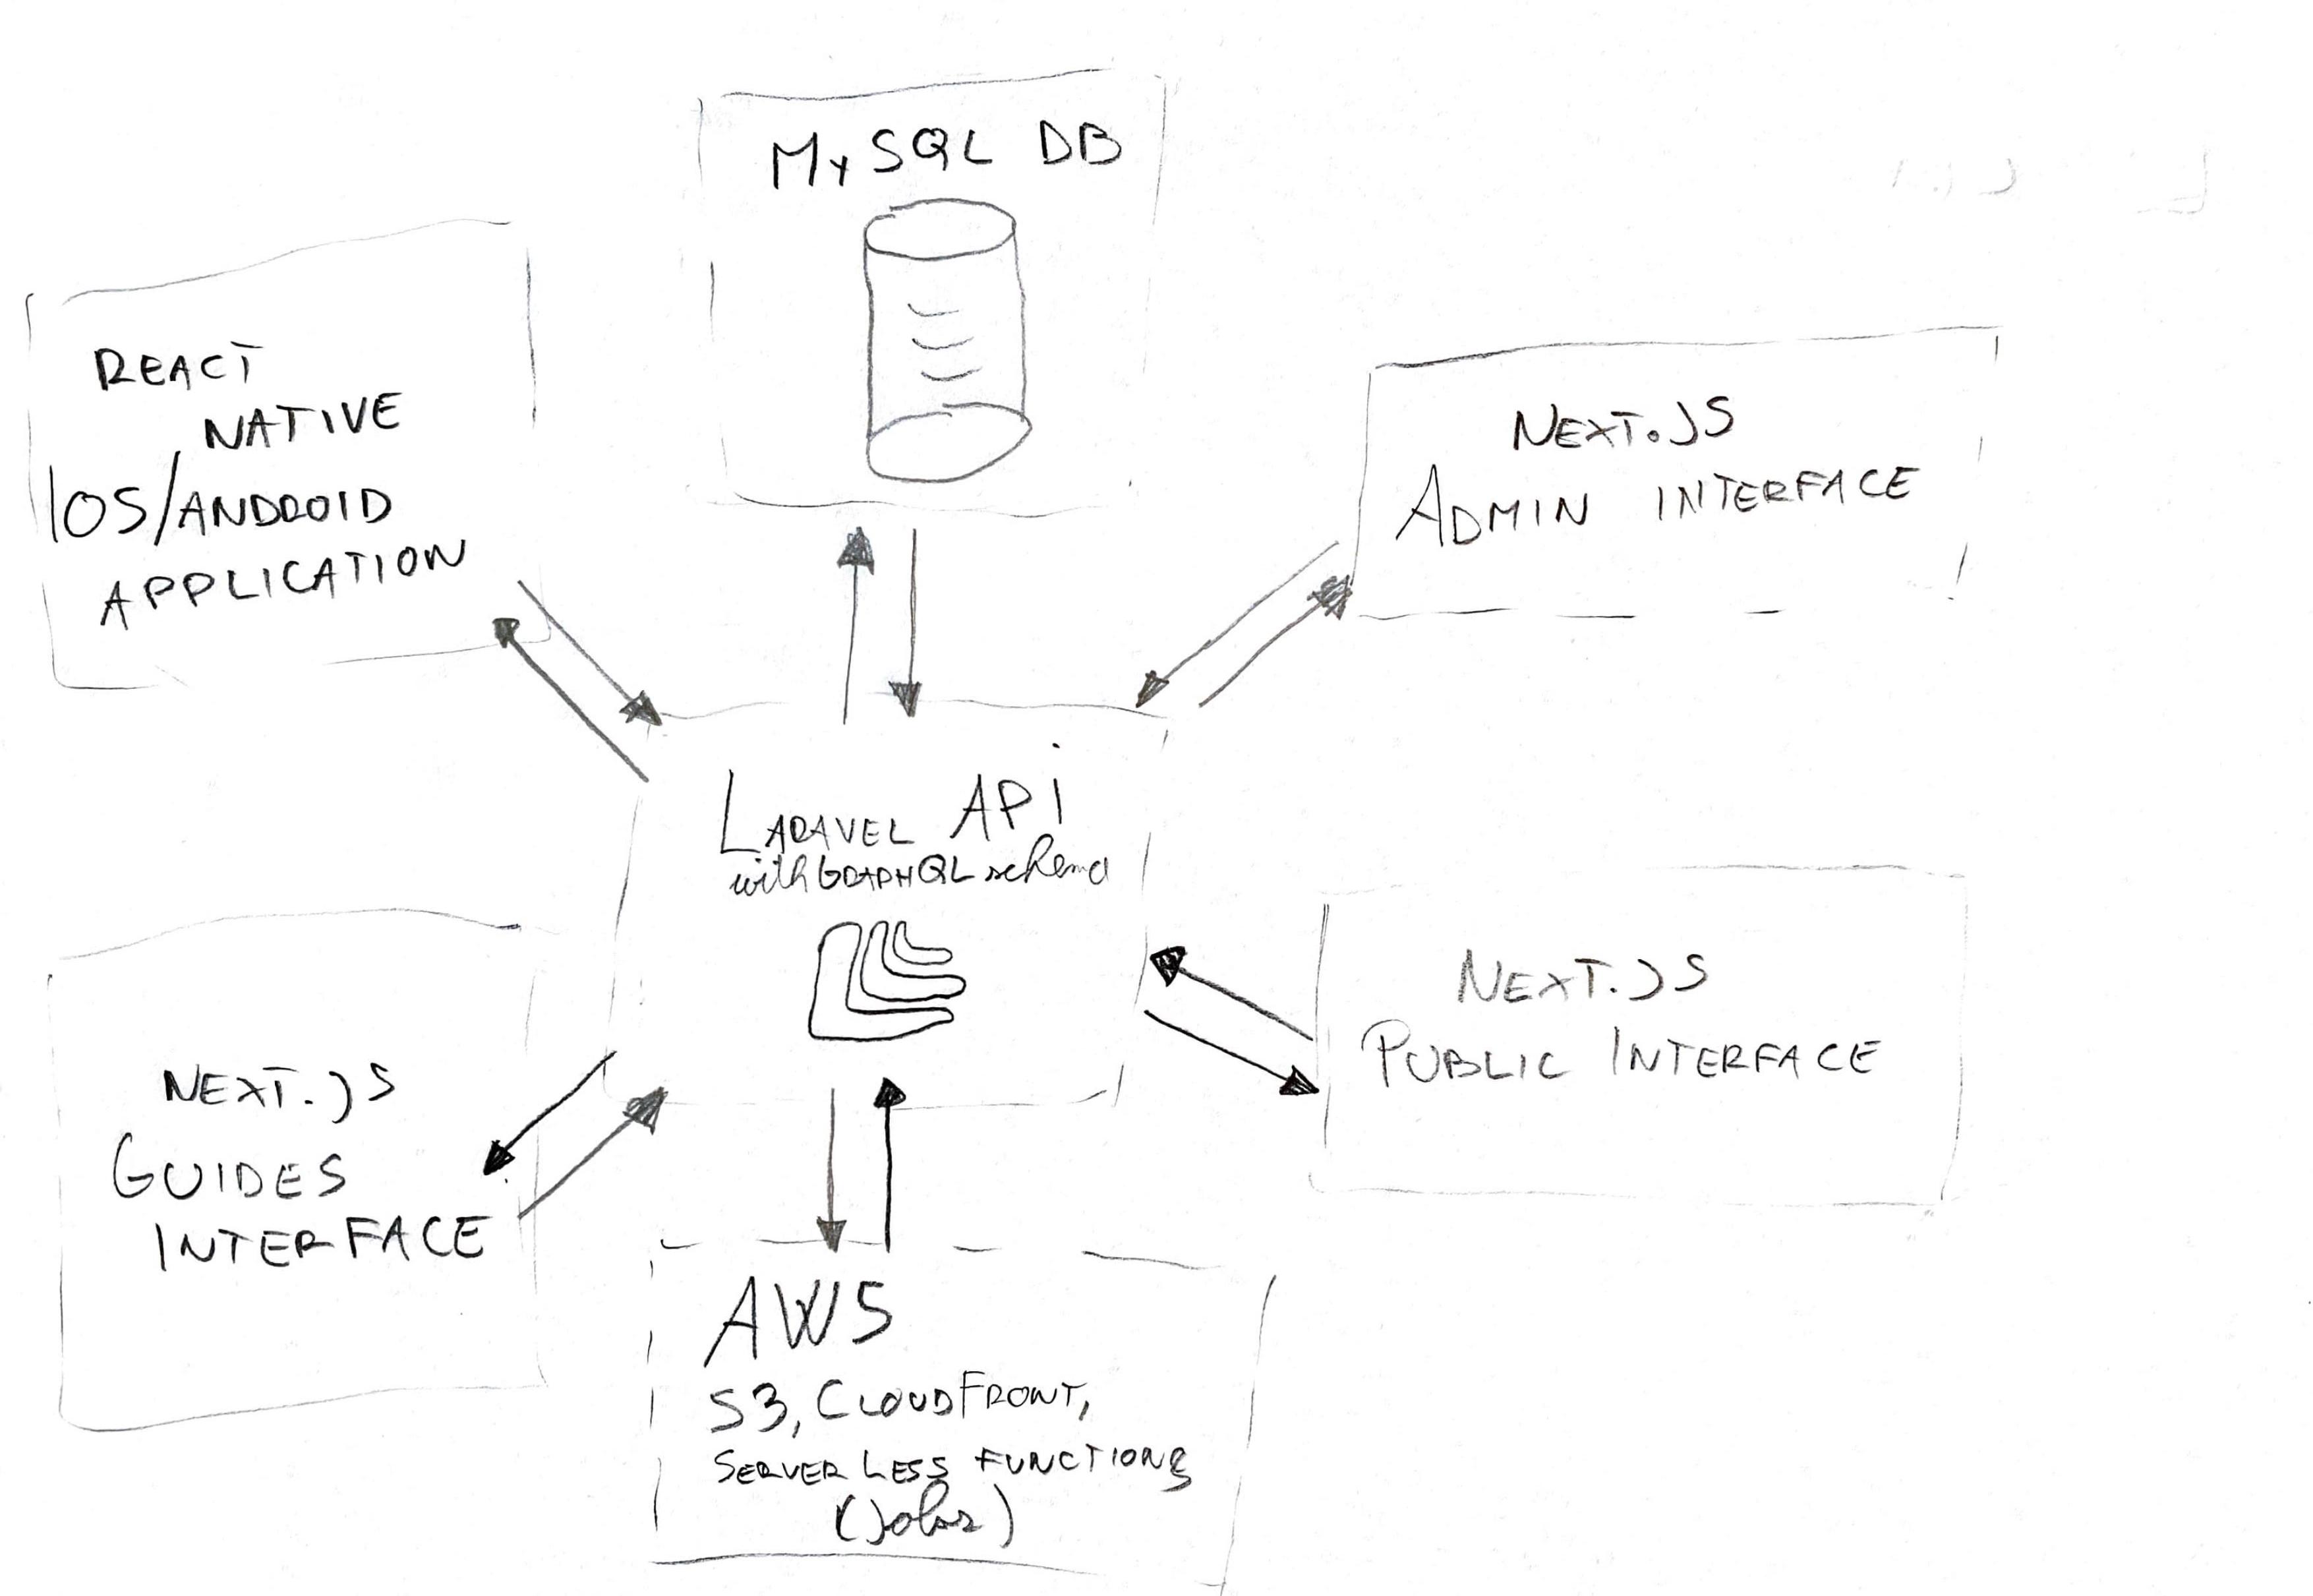 MySQL DB
REACT
NATIVE
IOS/ANDROID
APPLICATION
NEXT.JS
ADMIN INTERFACE
LARAVEL API
with GRAPHQL schema
NEXT.JS
GUIDES
INTERFACE
NEXT.JS
PUBLIC INTERFACE
AWS
S3, CLOUDFRONT,
SERVERLESS FUNCTIONS
(Jobs)